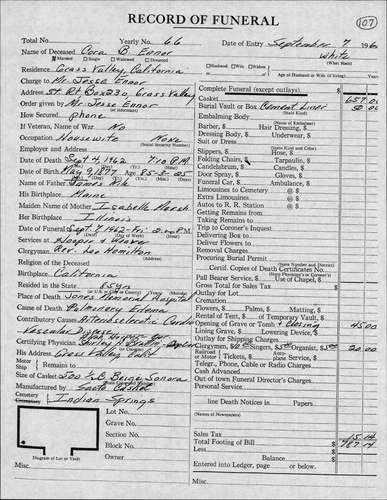 RECORD OF FUNERAL
107
Total No. Yearly No. 66 Date of Entry September 7 196
Name of Deceased Cora B. Ennor White
Married Single Widowed Divorced (What Race)
Residence Grass Valley, California
Husband Wife Widow of
Charge to Mr. Jesse Ennor
Age of Husband or Wife (if living) Yrs.
Address St. Rt. Box 230, Grass Valley
Order given by Mr. Jesse Ennor
How Secured phone
If Veteran, Name of War No
Occupation Housewife None
(Social Security Number)
Employer and Address
Date of Death Sept 4, 1962 7:10 P.M.
Date of Birth May 9, 1877 85-3-25
Name of Father James Pike
His Birthplace Maine
Maiden Name of Mother Isabelle Marsh
Her Birthplace Illinois
Date of Funeral Sept 7, 1962 - Fri 2:00 P.M.
Services at Hooper & Weaver
Clergyman Rev. Leo Hamilton
Religion of the Deceased
Birthplace California
Resided in the State 85 yrs
Place of Death Jones Memorial Hospital
Cause of Death Pulmonary Edema
Contributory Causes Arteriosclerotic Cardio
Vascular Disease
Certifying Physician
His Address Grass Valley, Calif
Motor
Ship Remains to
Size of Casket
Manufactured by Sacto Casket
Cemetery
Crematory Indian Springs
Lot No.
Grave No.
Section No.
Block No.
Owner
Diagram of Lot or Vault
Misc.
Complete Funeral (except outlays)
Casket 657.00
Burial Vault or Box Cement Liner 50.00
(State Kind)
Embalming Body
(Name of Embalmer)
Barber, Hair Dressing,
Dressing Body, Underwear,
Suit or Dress
(State Kind and Color)
Slippers, Hose,
Folding Chairs, Tarpaulin,
Candelabrum, Candles,
Door Spray, Gloves,
Funeral Car, Ambulance,
Limousines to Cemetery @
Extra Limousines @
Autos to R. R. Station @
Getting Remains from
Taking Remains to
Trip to Coroner's Inquest
Delivering Box to
Deliver Flowers to
Removal Charges
Procuring Burial Permit
(State Number and District)
Certif. Copies of Death Certificates No.
(State Number)
Pall Bearer Service, Use of Chapel,
Gross Total for Sales Tax
Outlay for Lot
Cremation
Flowers, Palms, Matting,
Rental of Tent, of Temporary Vault,
Opening of Grave or Tomb & Closing 45.00
Lining Grave, Lowering Device,
Outlay for Shipping Charges
Clergymen, Singers, Organist, 20.00
Railroad or Motor Tickets, Aeroplane Service,
Telegr., Phone, Cable or Radio Charges
Cash Advanced
Out of town Funeral Director's Charges
Personal Service
line Death Notices in Papers.
(Names of Newspapers)
Sales Tax 15.14
Total Footing of Bill 787.14
Less
Balance
Entered into Ledger, page or below.
Misc.